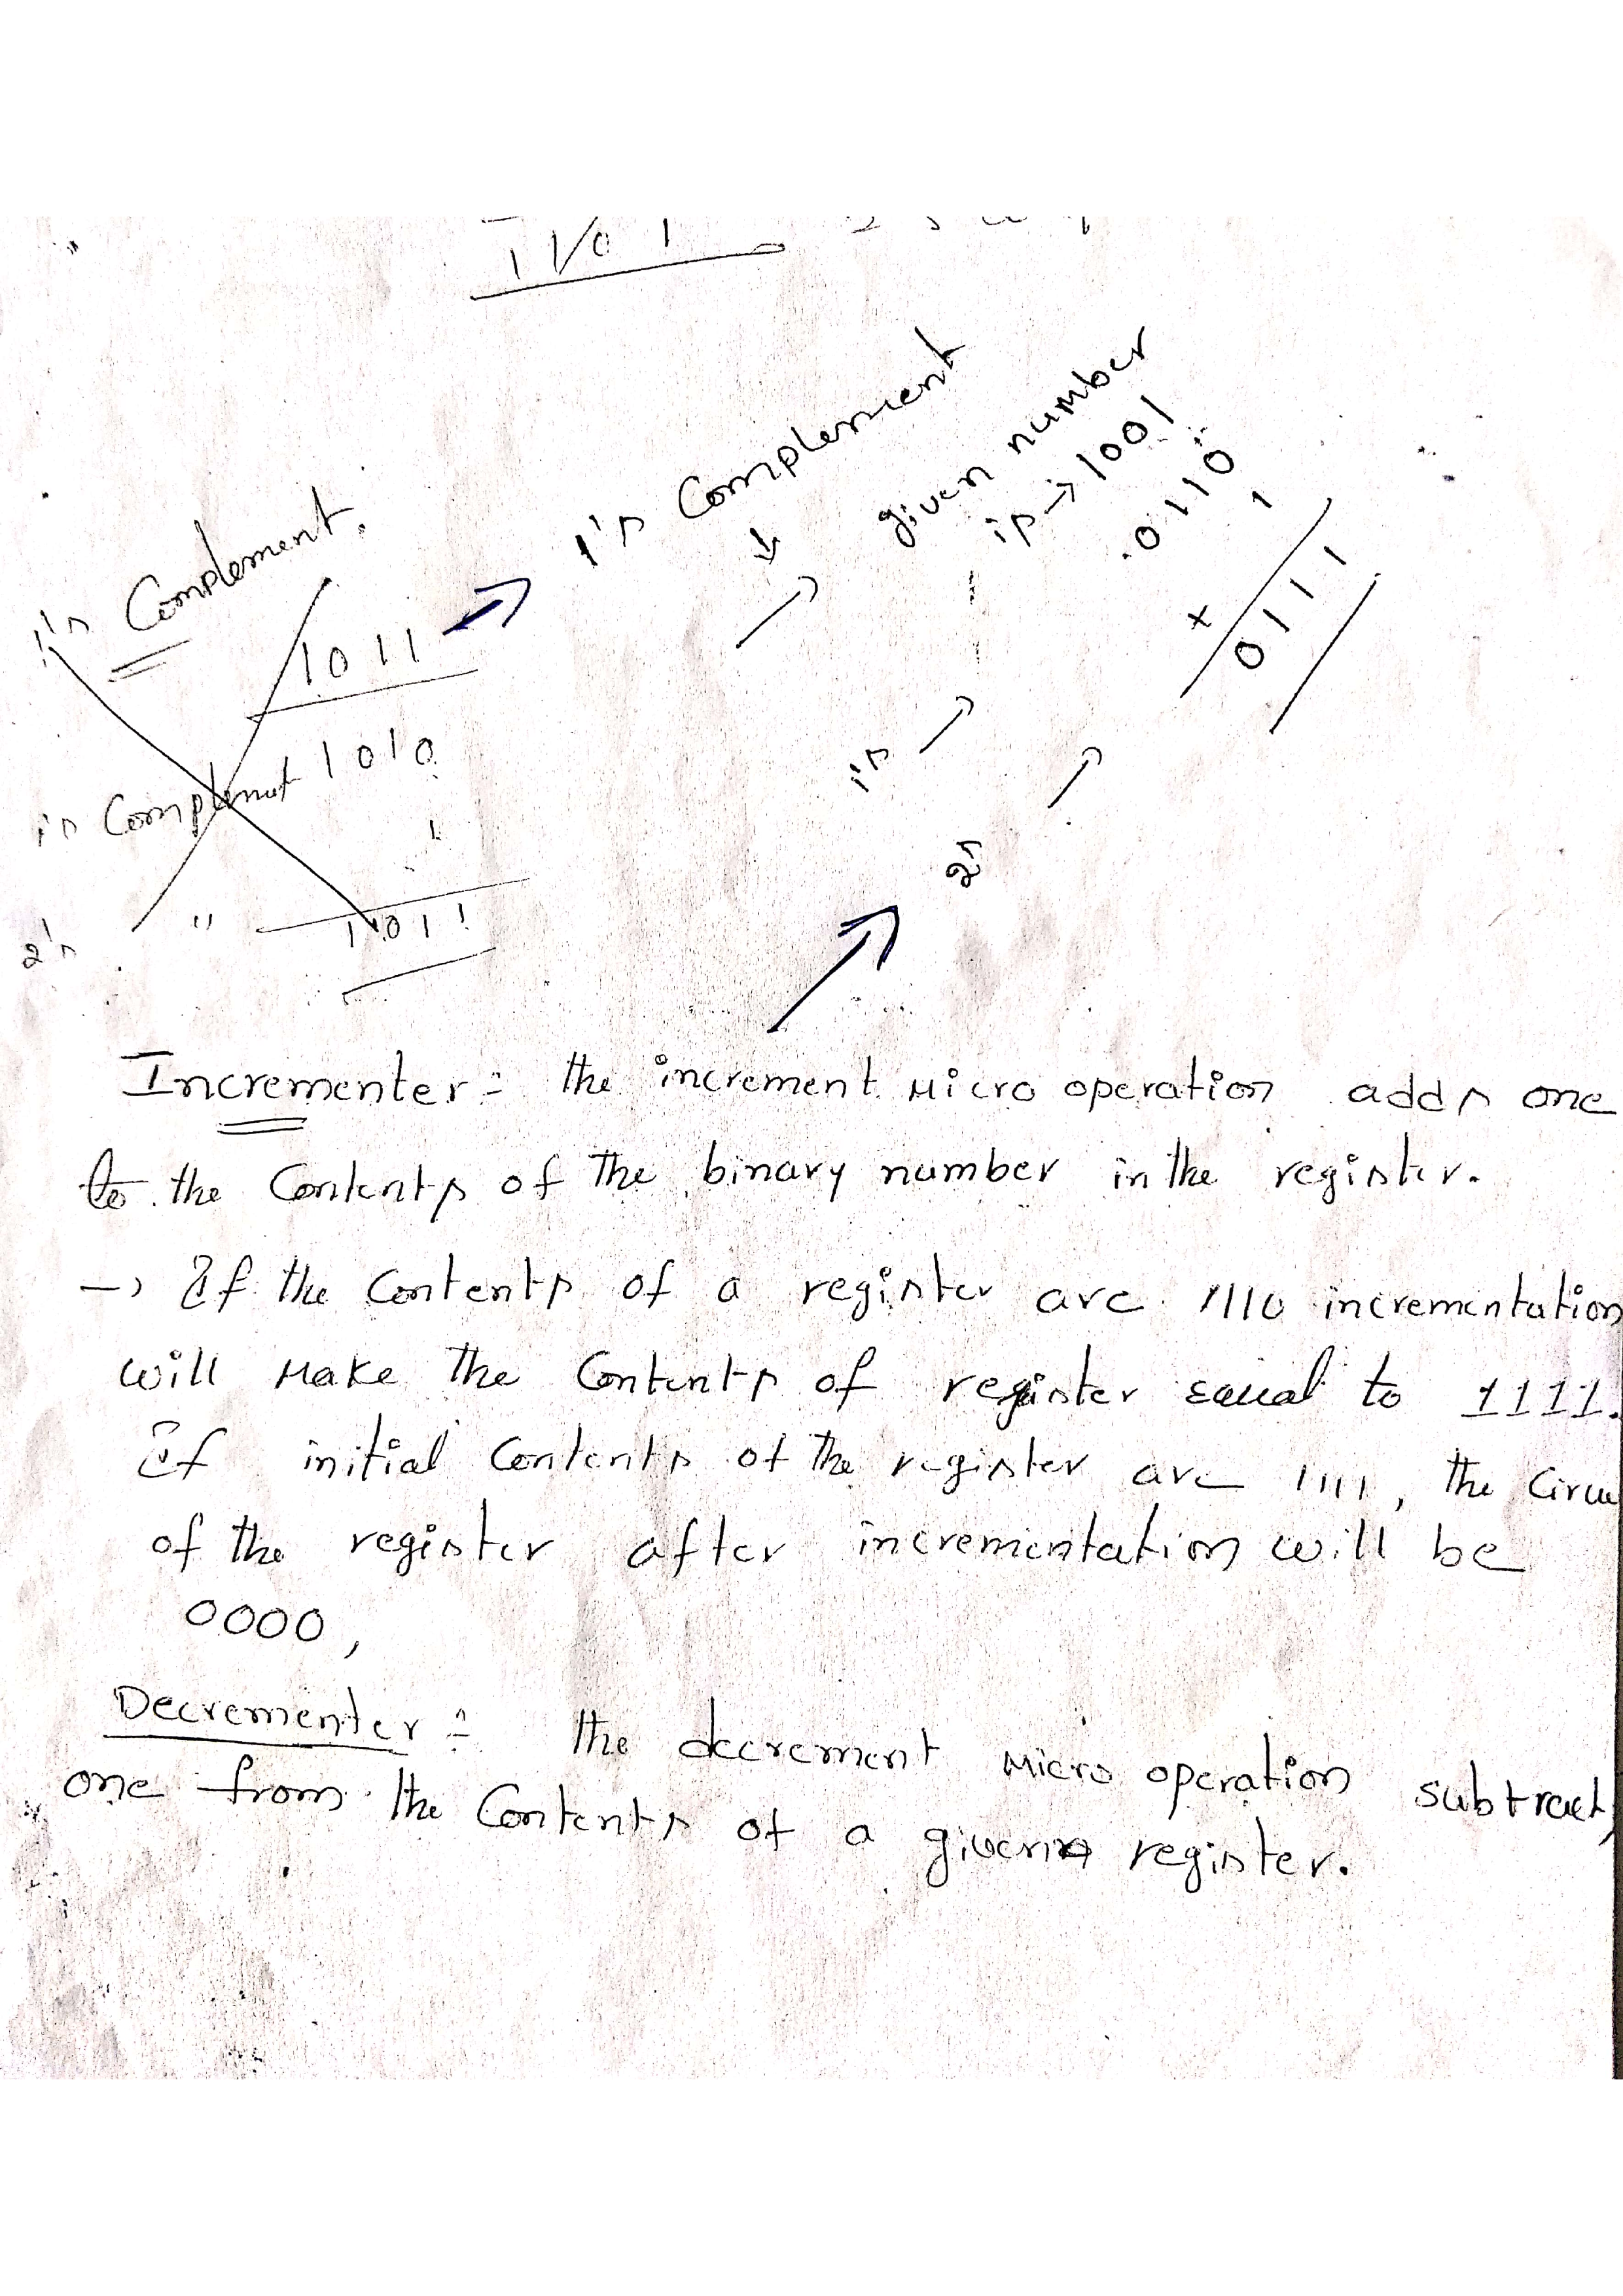 1101
1's Complement.
1011
1's Complemnt 1010
1
2's " 1011
1's Complement
given number
is → 1001
1's → 0110
1
+
2's → 0111
Incrementer:- the increment Micro operation adds one
to the Contents of the binary number in the register.
→ If the Contents of a register are 1110 incrementation
will Make the Contents of register equal to 1111.
If initial Contents of the register are 1111, the
of the register after incrementation will be
0000,
Decrementer:- the decrement Micro operation subtract
one from the Contents of a given register.